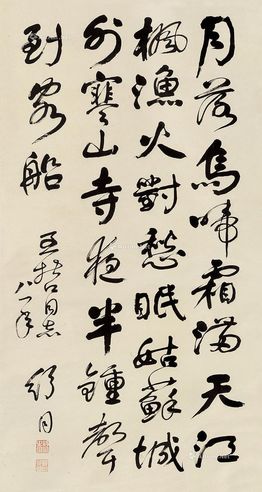 月落烏啼霜滿天江
楓漁火對愁眠姑蘇城
外寒山寺夜半鐘聲
到客船
同志
八一年
舒同